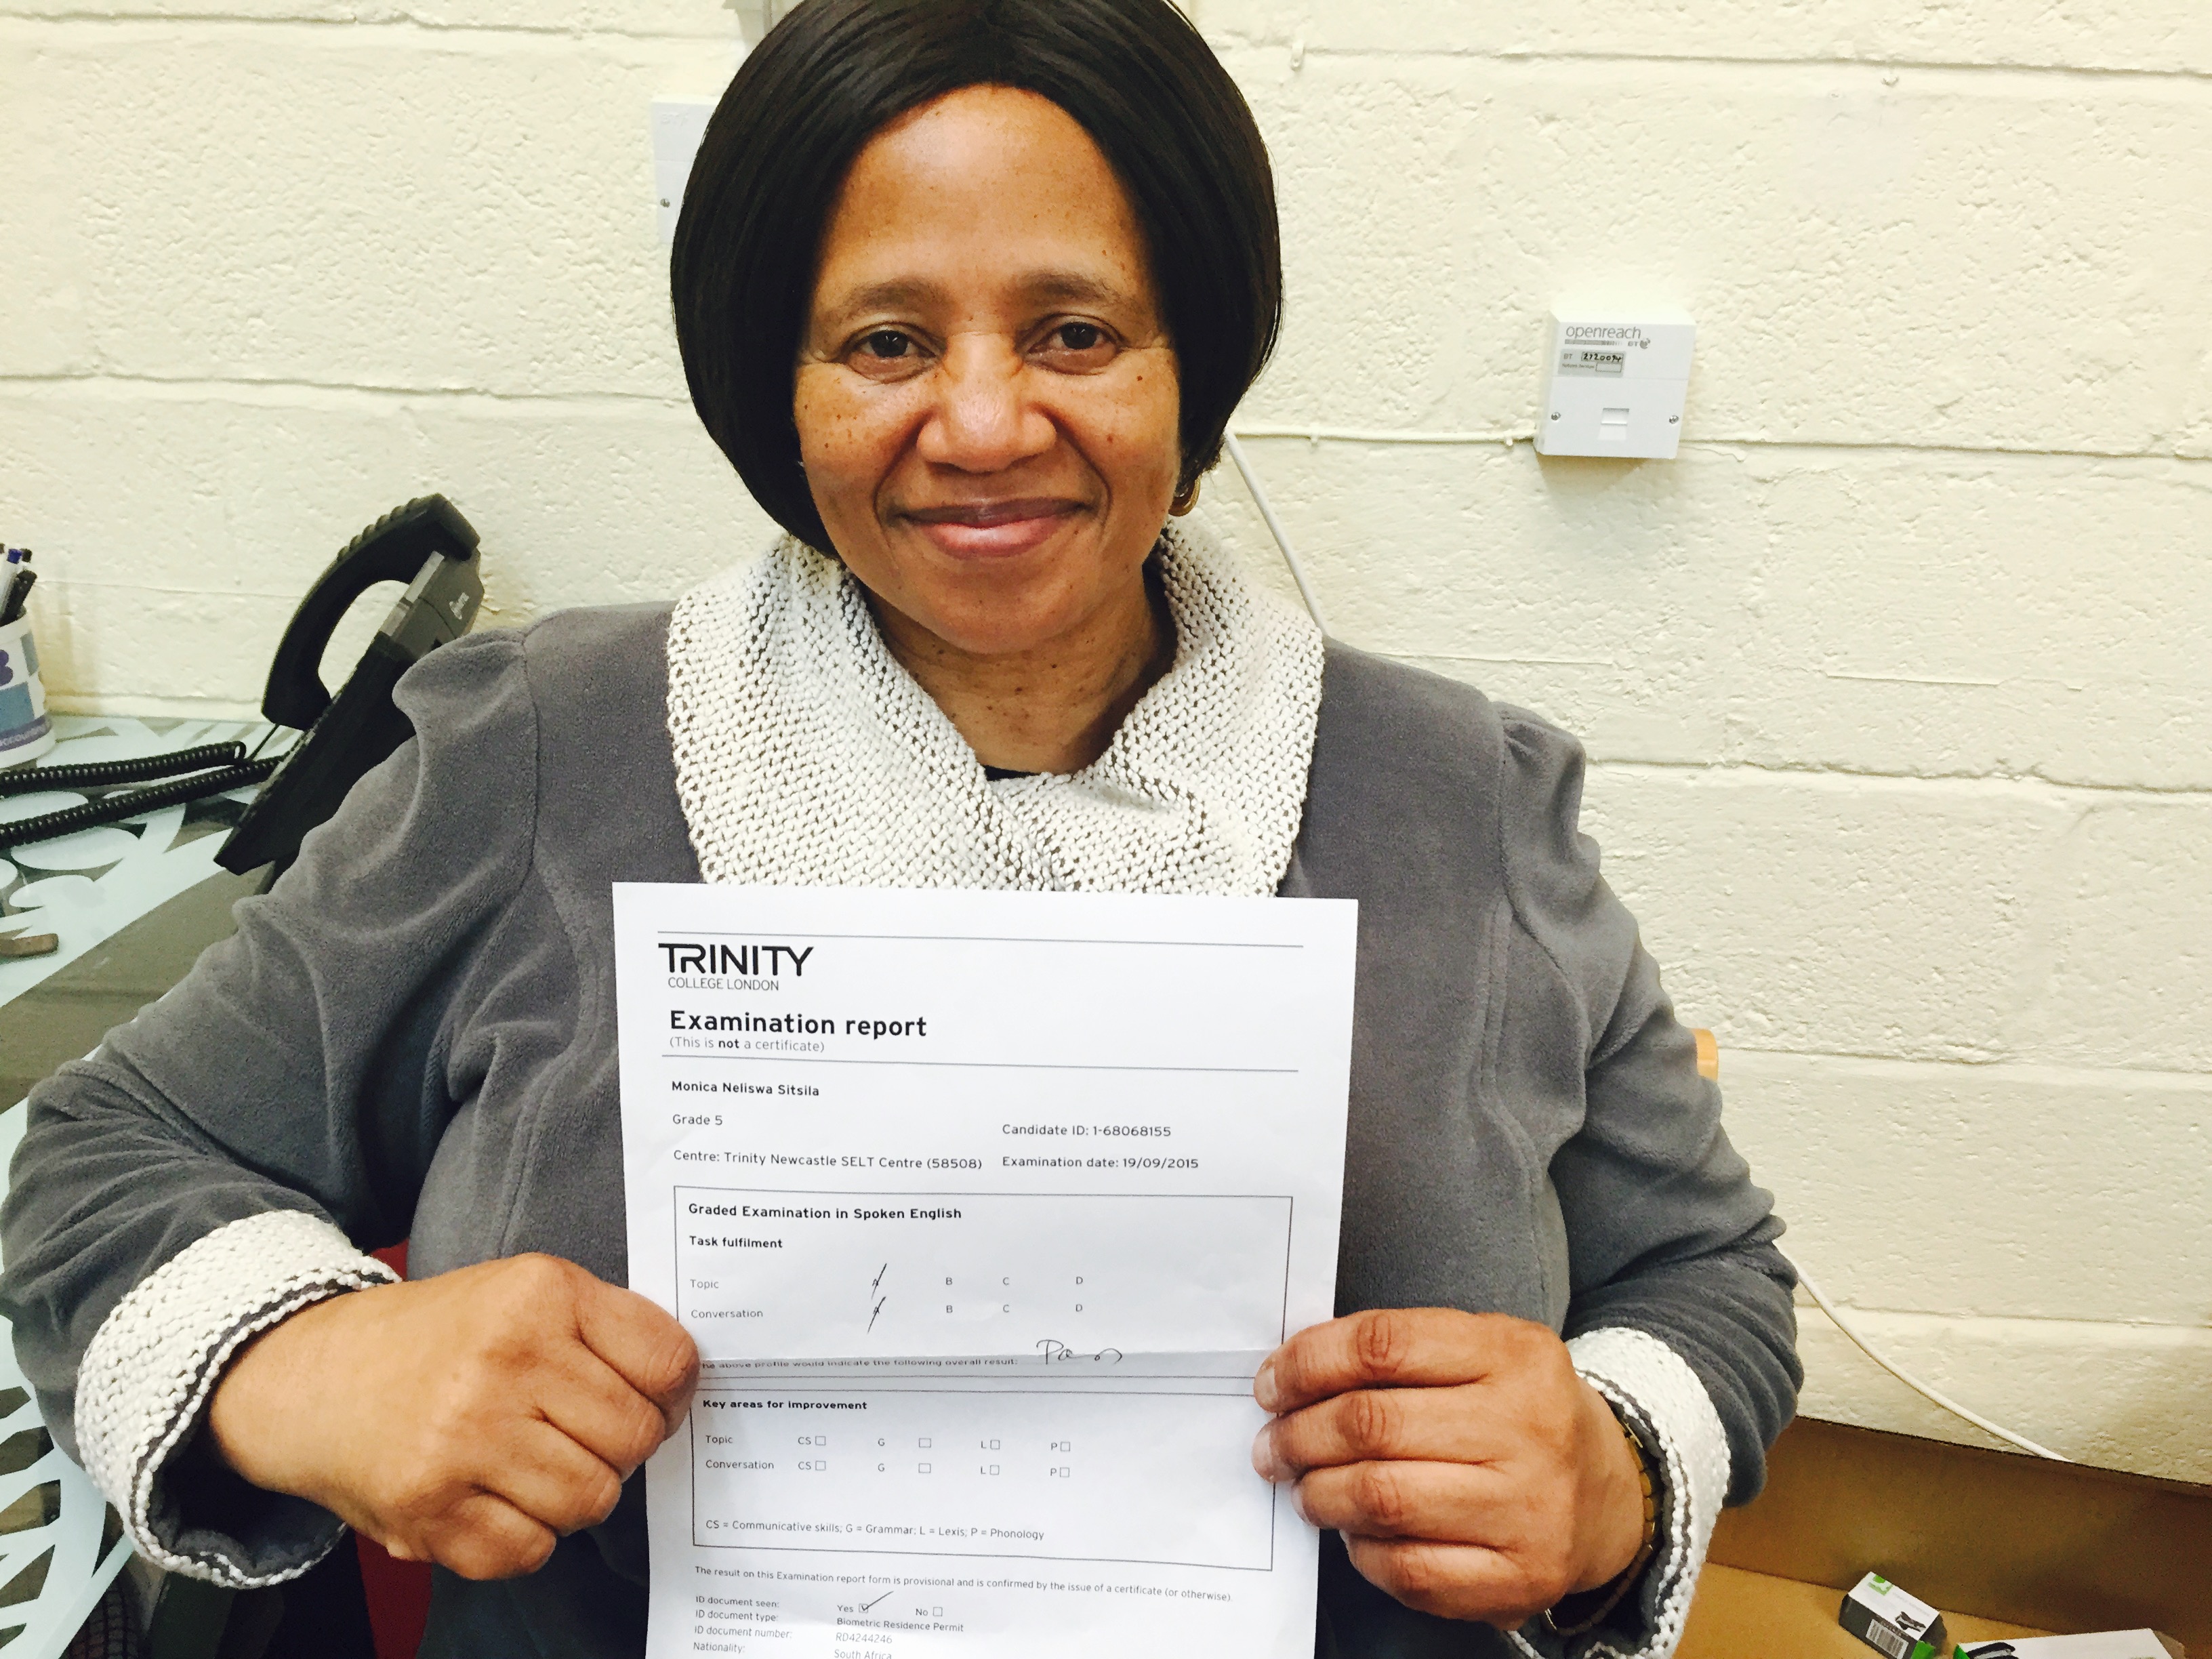 openreach
BT
BT 2720094
TRINITY
COLLEGE LONDON
Examination report
(This is not a certificate)
Monica Neliswa Sitsila
Grade 5
Candidate ID: 1-68068155
Centre: Trinity Newcastle SELT Centre (58508) Examination date: 19/09/2015
Graded Examination in Spoken English
Task fulfilment
Topic A B C D
Conversation A B C D
the above profile would indicate the following overall result: Pass
Key areas for improvement
Topic CS G L P
Conversation CS G L P
CS = Communicative skills; G = Grammar; L = Lexis; P = Phonology
The result on this Examination report form is provisional and is confirmed by the issue of a certificate (or otherwise).
ID document seen: Yes No
ID document type: Biometric Residence Permit
ID document number: RD4244246
Nationality: South Africa